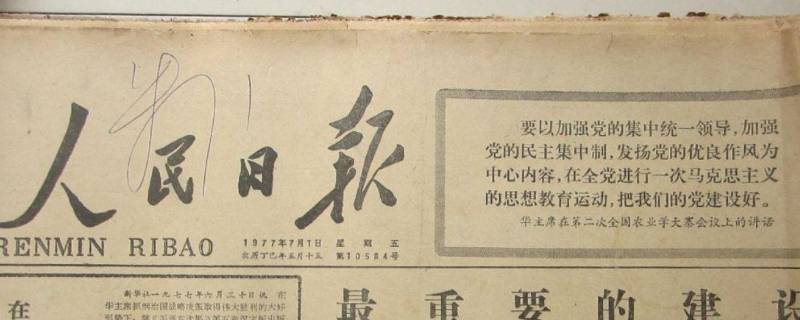 人民日报
RENMIN RIBAO
1977年7月1日 星期五
农历丁巳年五月十五 第10584号
要以加强党的集中统一领导，加强
党的民主集中制，发扬党的优良作风为
中心内容，在全党进行一次马克思主义
的思想教育运动，把我们的党建设好。
华主席在第二次全国农业学大寨会议上的讲话
在
新华社一九七七年六月三十日讯 在
华主席抓纲治国战略决策取得伟大胜利的大好
最重要的建设